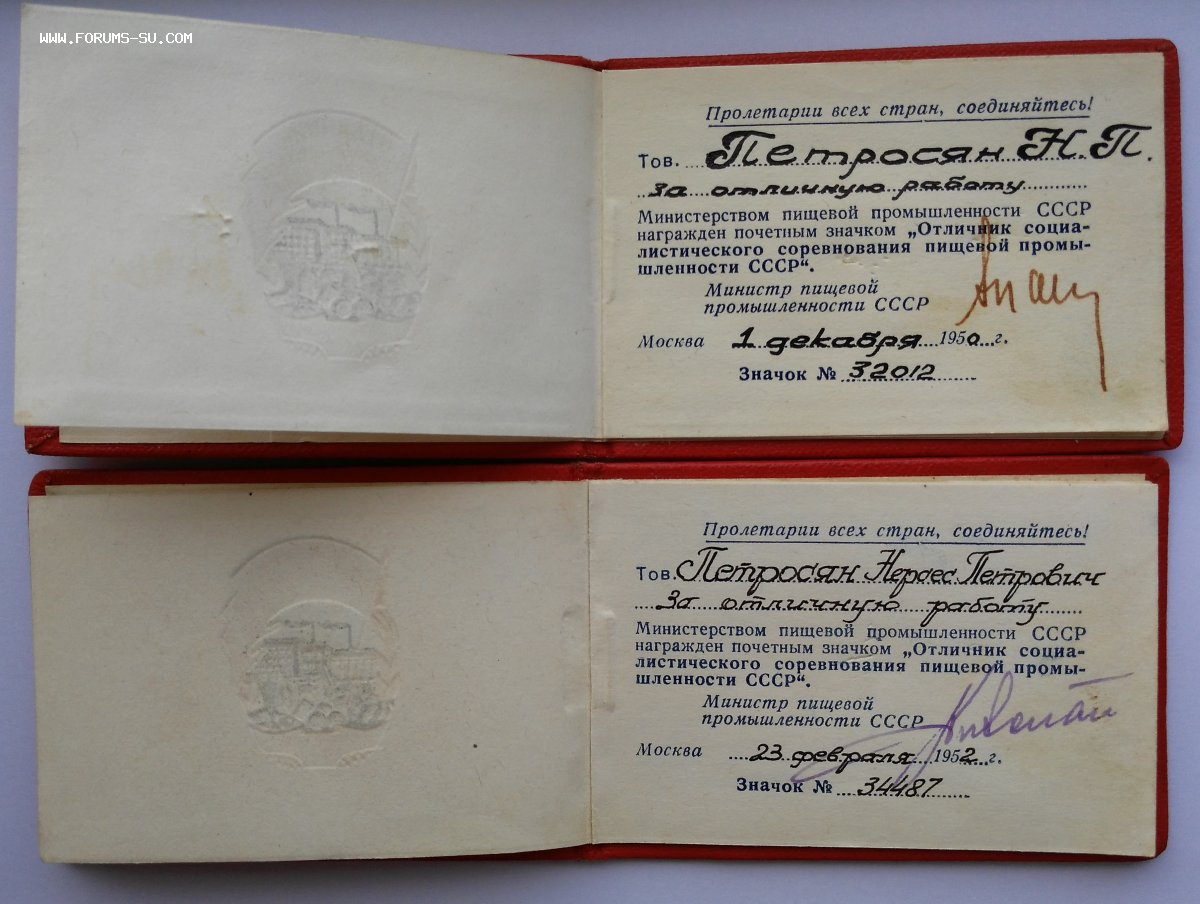 WWW.FORUMS-SU.COM
Пролетарии всех стран, соединяйтесь!
Тов. Петросян Н.П.
за отличную работу
Министерством пищевой промышленности СССР
награжден почетным значком „Отличник социа-
листического соревнования пищевой промы-
шленности СССР“.
Министр пищевой
промышленности СССР
Москва 1 декабря 1950 г.
Значок № 32012
Пролетарии всех стран, соединяйтесь!
Тов. Петросян Нерсес Петрович
За отличную работу
Министерством пищевой промышленности СССР
награжден почетным значком „Отличник социа-
листического соревнования пищевой промы-
шленности СССР“.
Министр пищевой
промышленности СССР
Москва 23 февраля 1952 г.
Значок № 34487